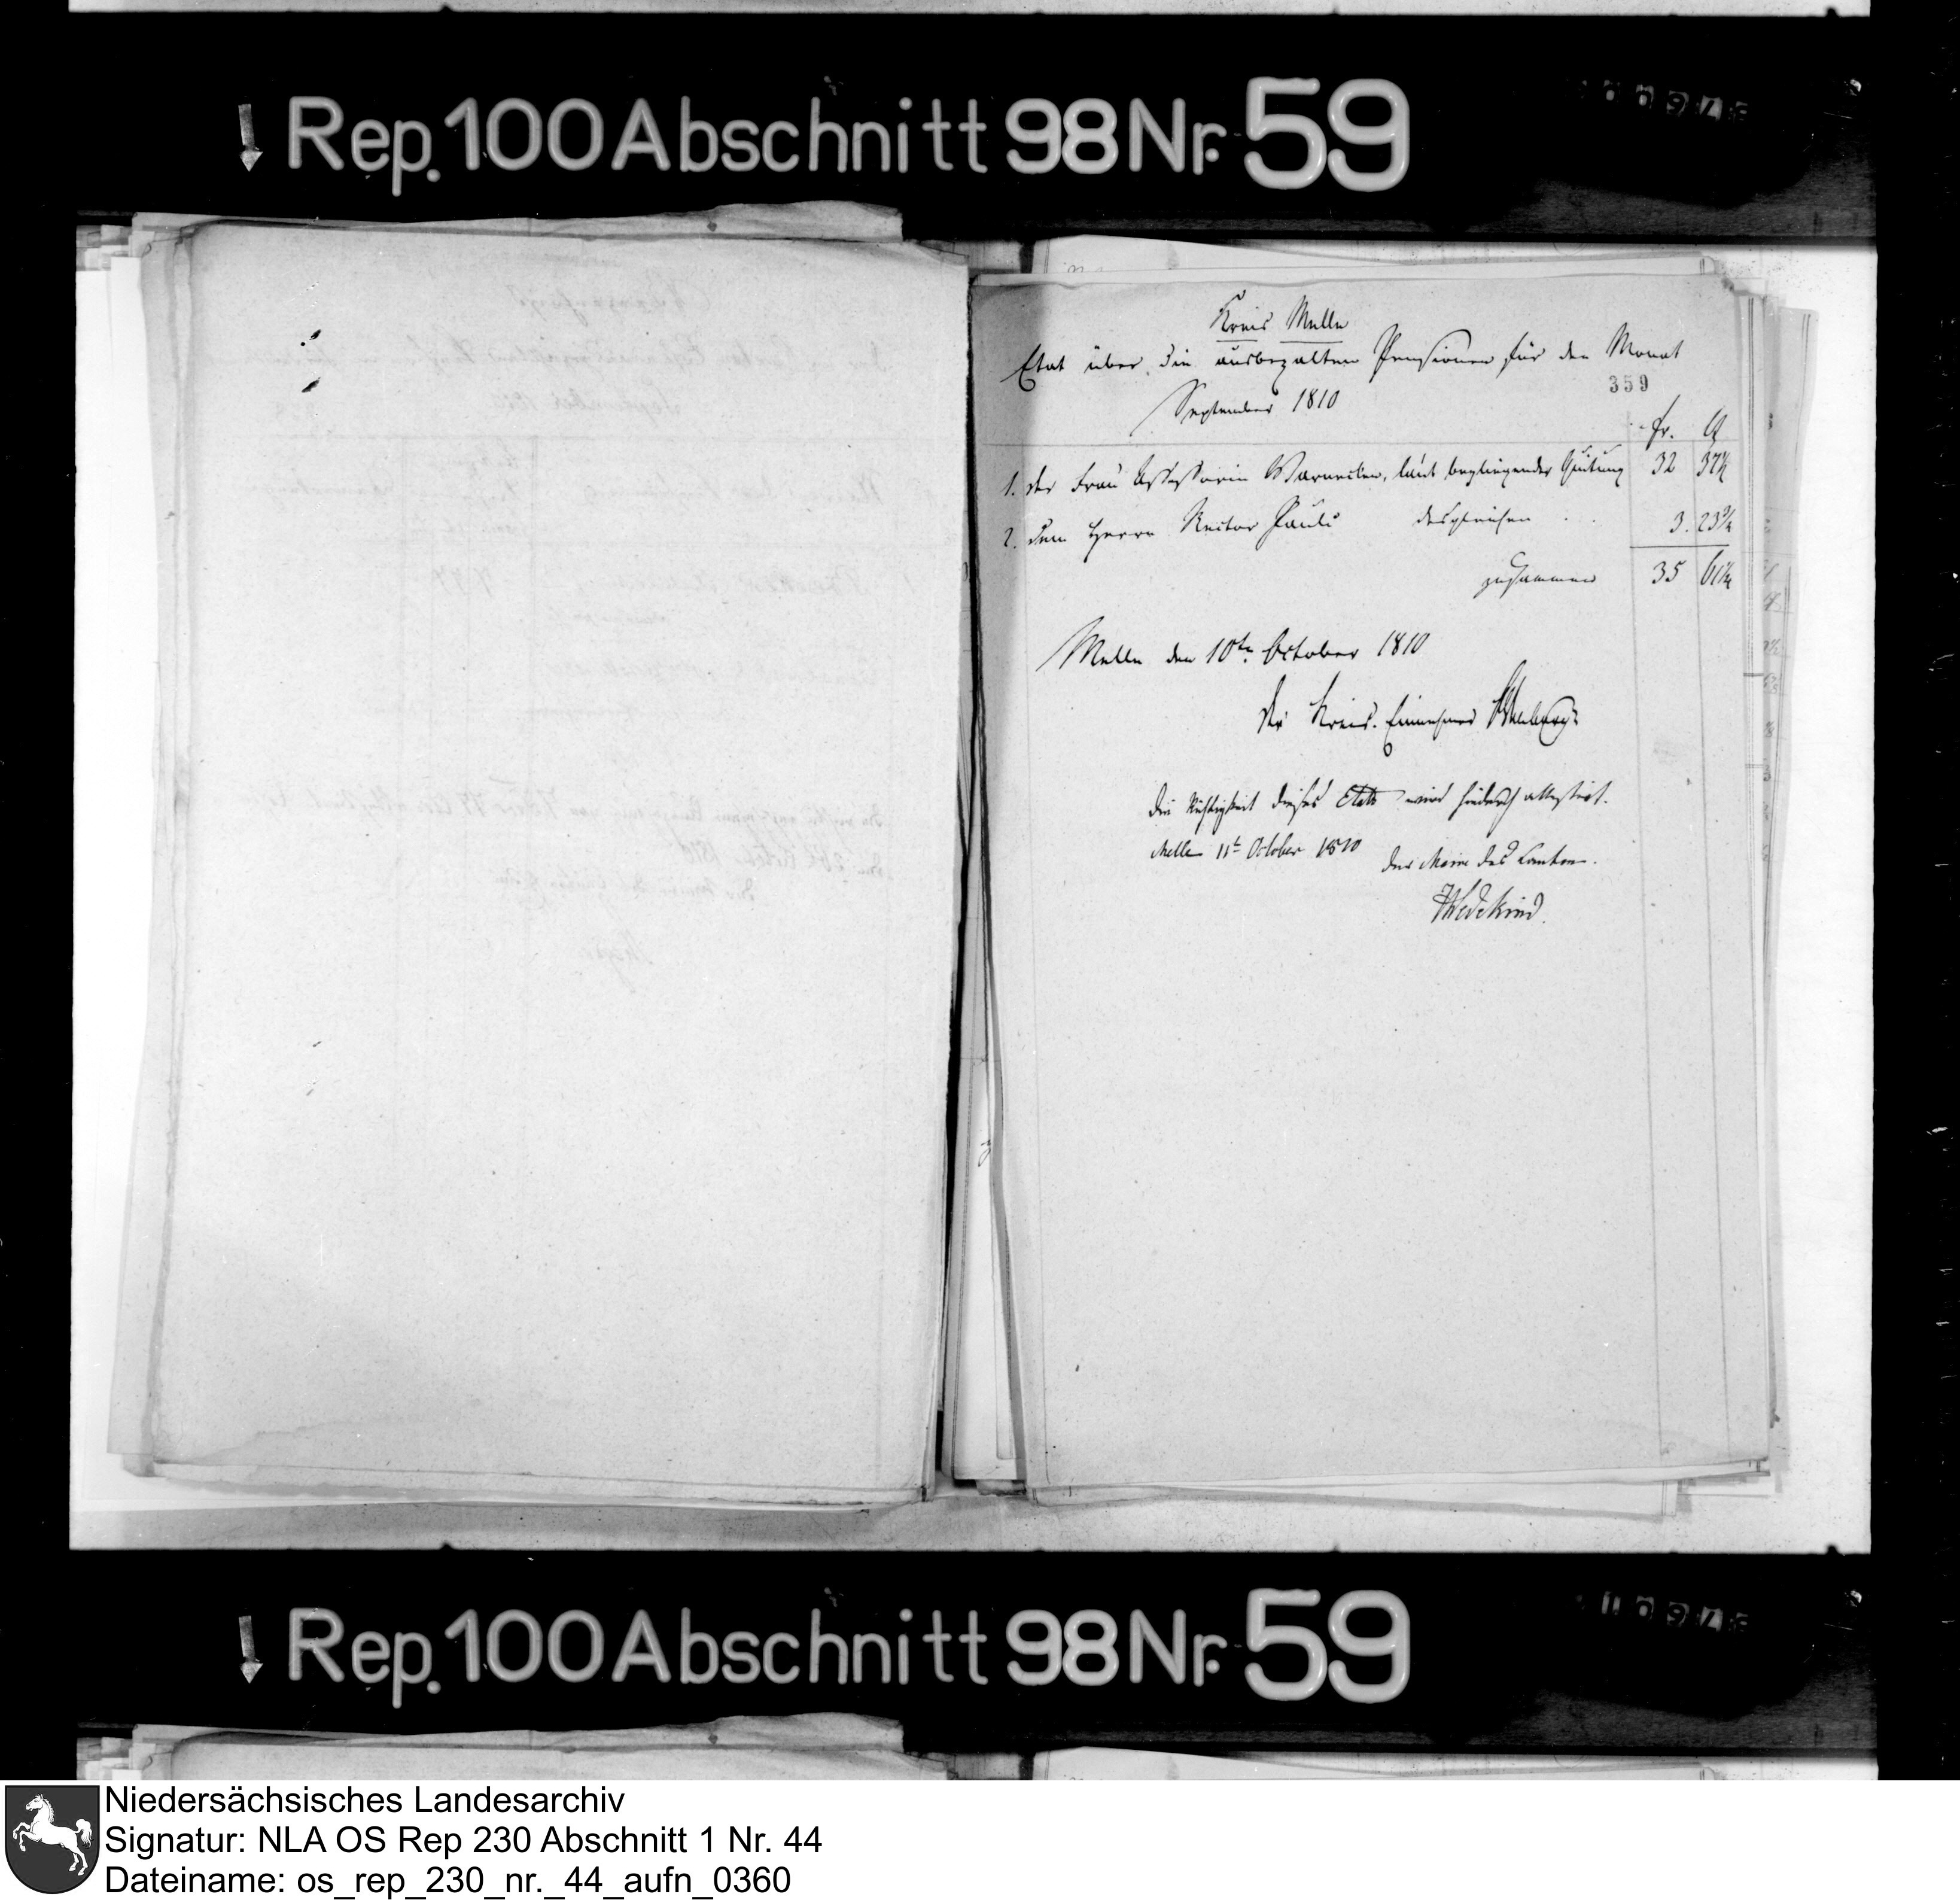 Rep. 100 Abschnitt 98 Nr. 59
Kreis Melle
Etat über die ausbezalten Pensionen für den Monat
359
September 1810
fr. Ct
1. der Frau Assessorin Warnecken, laut beyliegender Quitung 32 37½
2. dem Herrn Rector Pauli desgleichen 3. 23¾
zusammen 35 61¼
Melle den 10tn October 1810
Der Kreis-Einnehmer
Die Richtigkeit dieses Etats wird hiedurch attestirt.
Melle 11t October 1810 Der Maire des Cantons.
Wedekind.
Rep. 100 Abschnitt 98 Nr. 59
Niedersächsisches Landesarchiv
Signatur: NLA OS Rep 230 Abschnitt 1 Nr. 44
Dateiname: os_rep_230_nr._44_aufn_0360